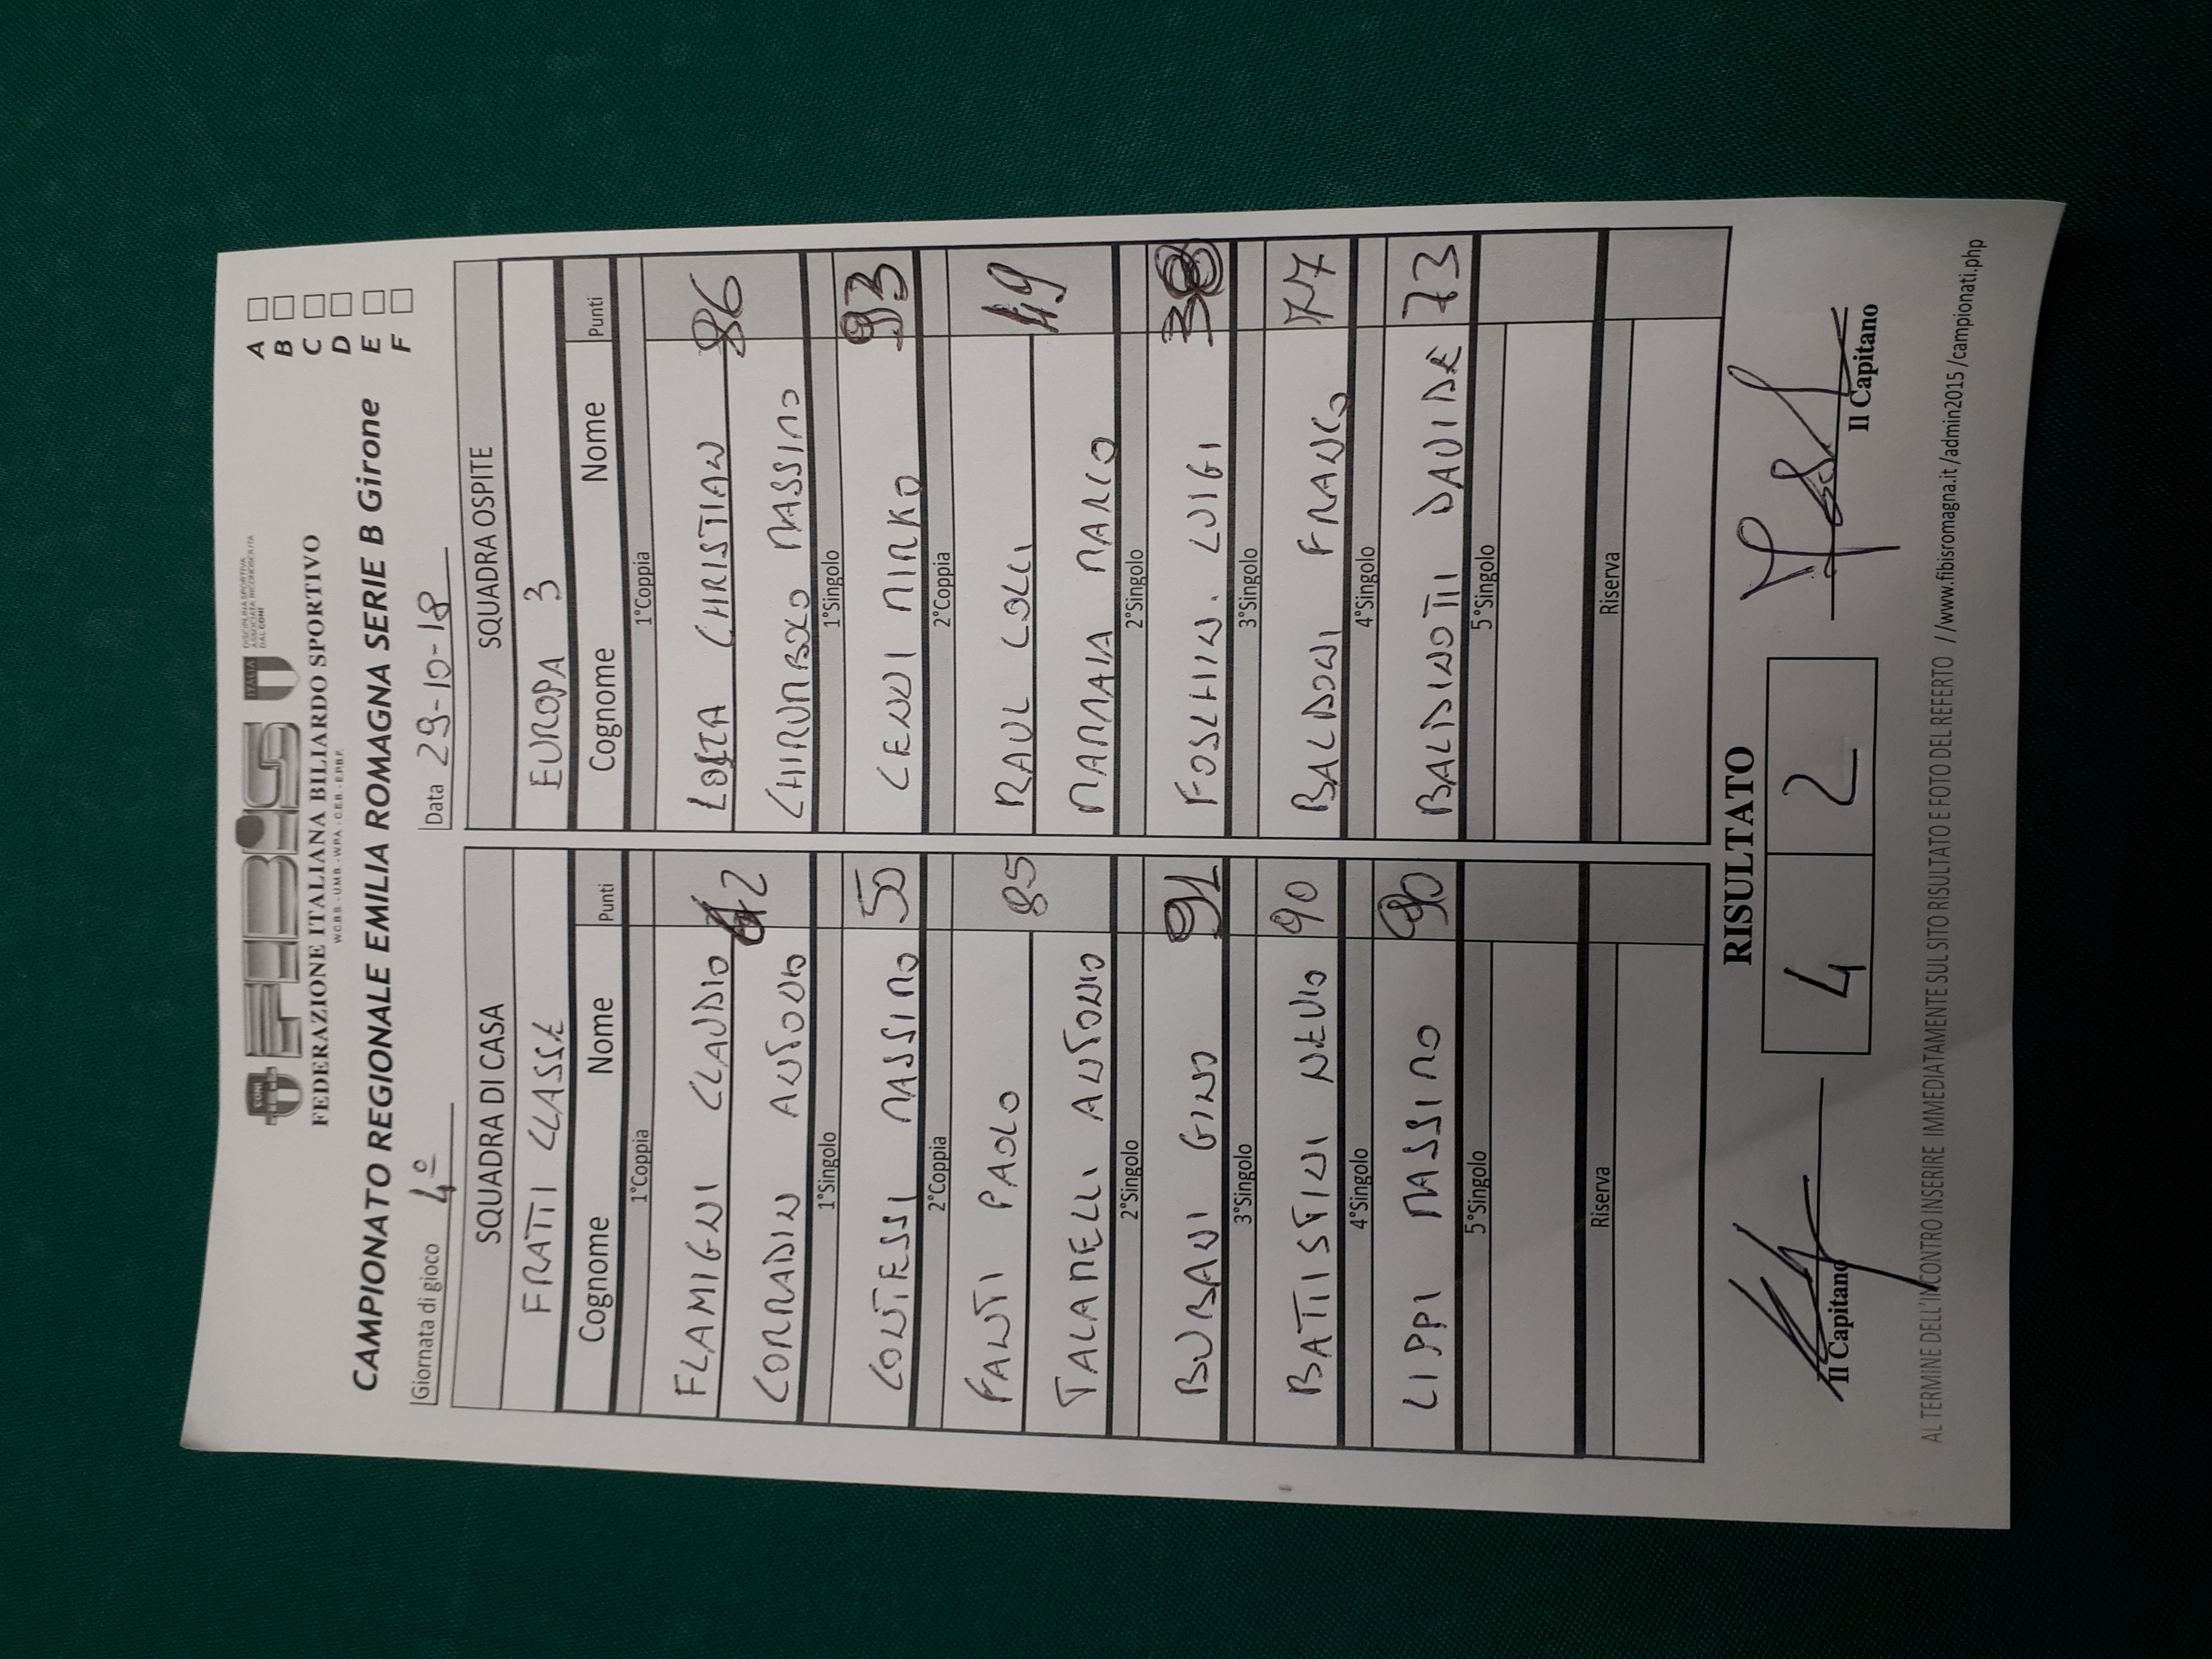 FEDERAZIONE ITALIANA BILIARDO SPORTIVO
CAMPIONATO REGIONALE EMILIA ROMAGNA SERIE B Girone
A
B
C
D
E
F
Giornata di gioco 4°
Data 29-10-18
SQUADRA DI CASA SQUADRA OSPITE
FRATTI CLASSE EUROPA 3
Cognome Nome Punti Cognome Nome Punti
1°Coppia 1°Coppia
FLAMIGNI CLAUDIO CHRISTIAN 86
CORRADIN ANTONIO 42 CHIRUMBOLO MASSIMO
1°Singolo 1°Singolo
CONTESSI MASSIMO 50 CENNI MIRKO 93
2°Coppia 2°Coppia
FANTI PAOLO 85 RAUL COLLI 49
TALANELLI ANTONIO MAMMAIA MARCO
2°Singolo 2°Singolo
BURBANI GINO 91 FOSCHIN. LUIGI 38
3°Singolo 3°Singolo
BATTISTINI NEVIO 90 BALDONI FRANCO 77
4°Singolo 4°Singolo
LIPPI MASSIMO 90 BALDINOTTI DAVIDE 73
5°Singolo 5°Singolo
Riserva Riserva
RISULTATO
4 2
Il Capitano Il Capitano
AL TERMINE DELL'INCONTRO INSERIRE IMMEDIATAMENTE SUL SITO RISULTATO E FOTO DEL REFERTO //www.fibisromagna.it /admin2015 /campionati.php